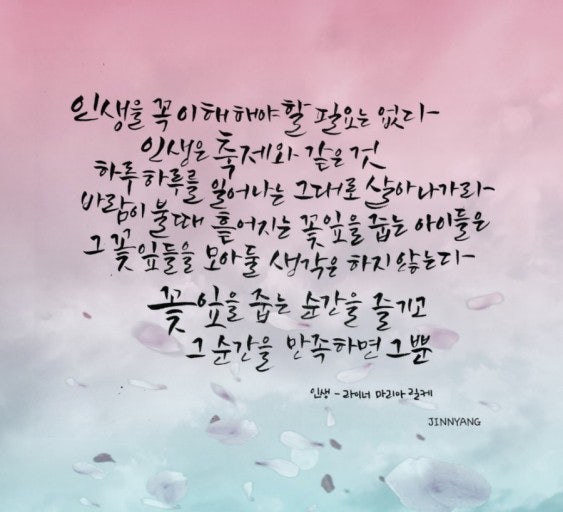 인생을 꼭 이해해야 할 필요는 없다
인생은 축제와 같은 것
하루하루를 일어나는 그대로 살아나가라
바람이 불때 흩어지는 꽃잎을 줍는 아이들은
그 꽃잎들을 모아둘 생각은 하지 않는다
꽃잎을 줍는 순간을 즐기고
그 순간을 만족하면 그뿐
인생 - 라이너 마리아 릴케
JINNYANG